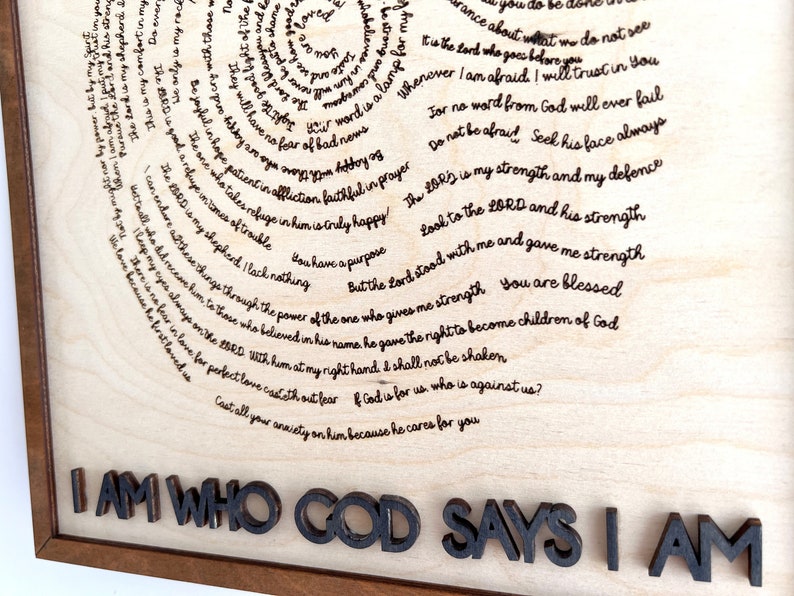 you do be done in
assurance about what we do not see
It is the Lord who goes before you
Whenever I am afraid, I will trust in You
For no word from God will ever fail
Do not be afraid
Seek his face always
The LORD is my strength and my defence
Look to the LORD and his strength
But the Lord stood with me and gave me strength
You are blessed
You have a purpose
you are loved
Taste and see
Your word is a lamp for my
be strong and courageous
will have no fear of bad news
Be happy with those who are happy, and cry with those
Be joyful in hope, patient in affliction, faithful in prayer
The one who takes refuge in him is truly happy!
is good, a refuge in times of trouble
The LORD is my shepherd, I lack nothing
I can endure all these things through the power of the one who gives me strength
Yet to all who did receive him, to those who believed in his name, he gave the right to become children of God
I keep my eyes always on the LORD. With him at my right hand, I shall not be shaken
There is no fear in love, for perfect love casteth out fear
If God is for us, who is against us?
We love because he first loved us
Cast all your anxiety on him because he cares for you
Not by might nor by power but by my Spirit
When I am afraid, I put my trust in you
Pursue the Lord and his strength
The Lord is my shepherd, I
This is my comfort in my
Do every
He only is my rock
I AM WHO GOD SAYS I AM